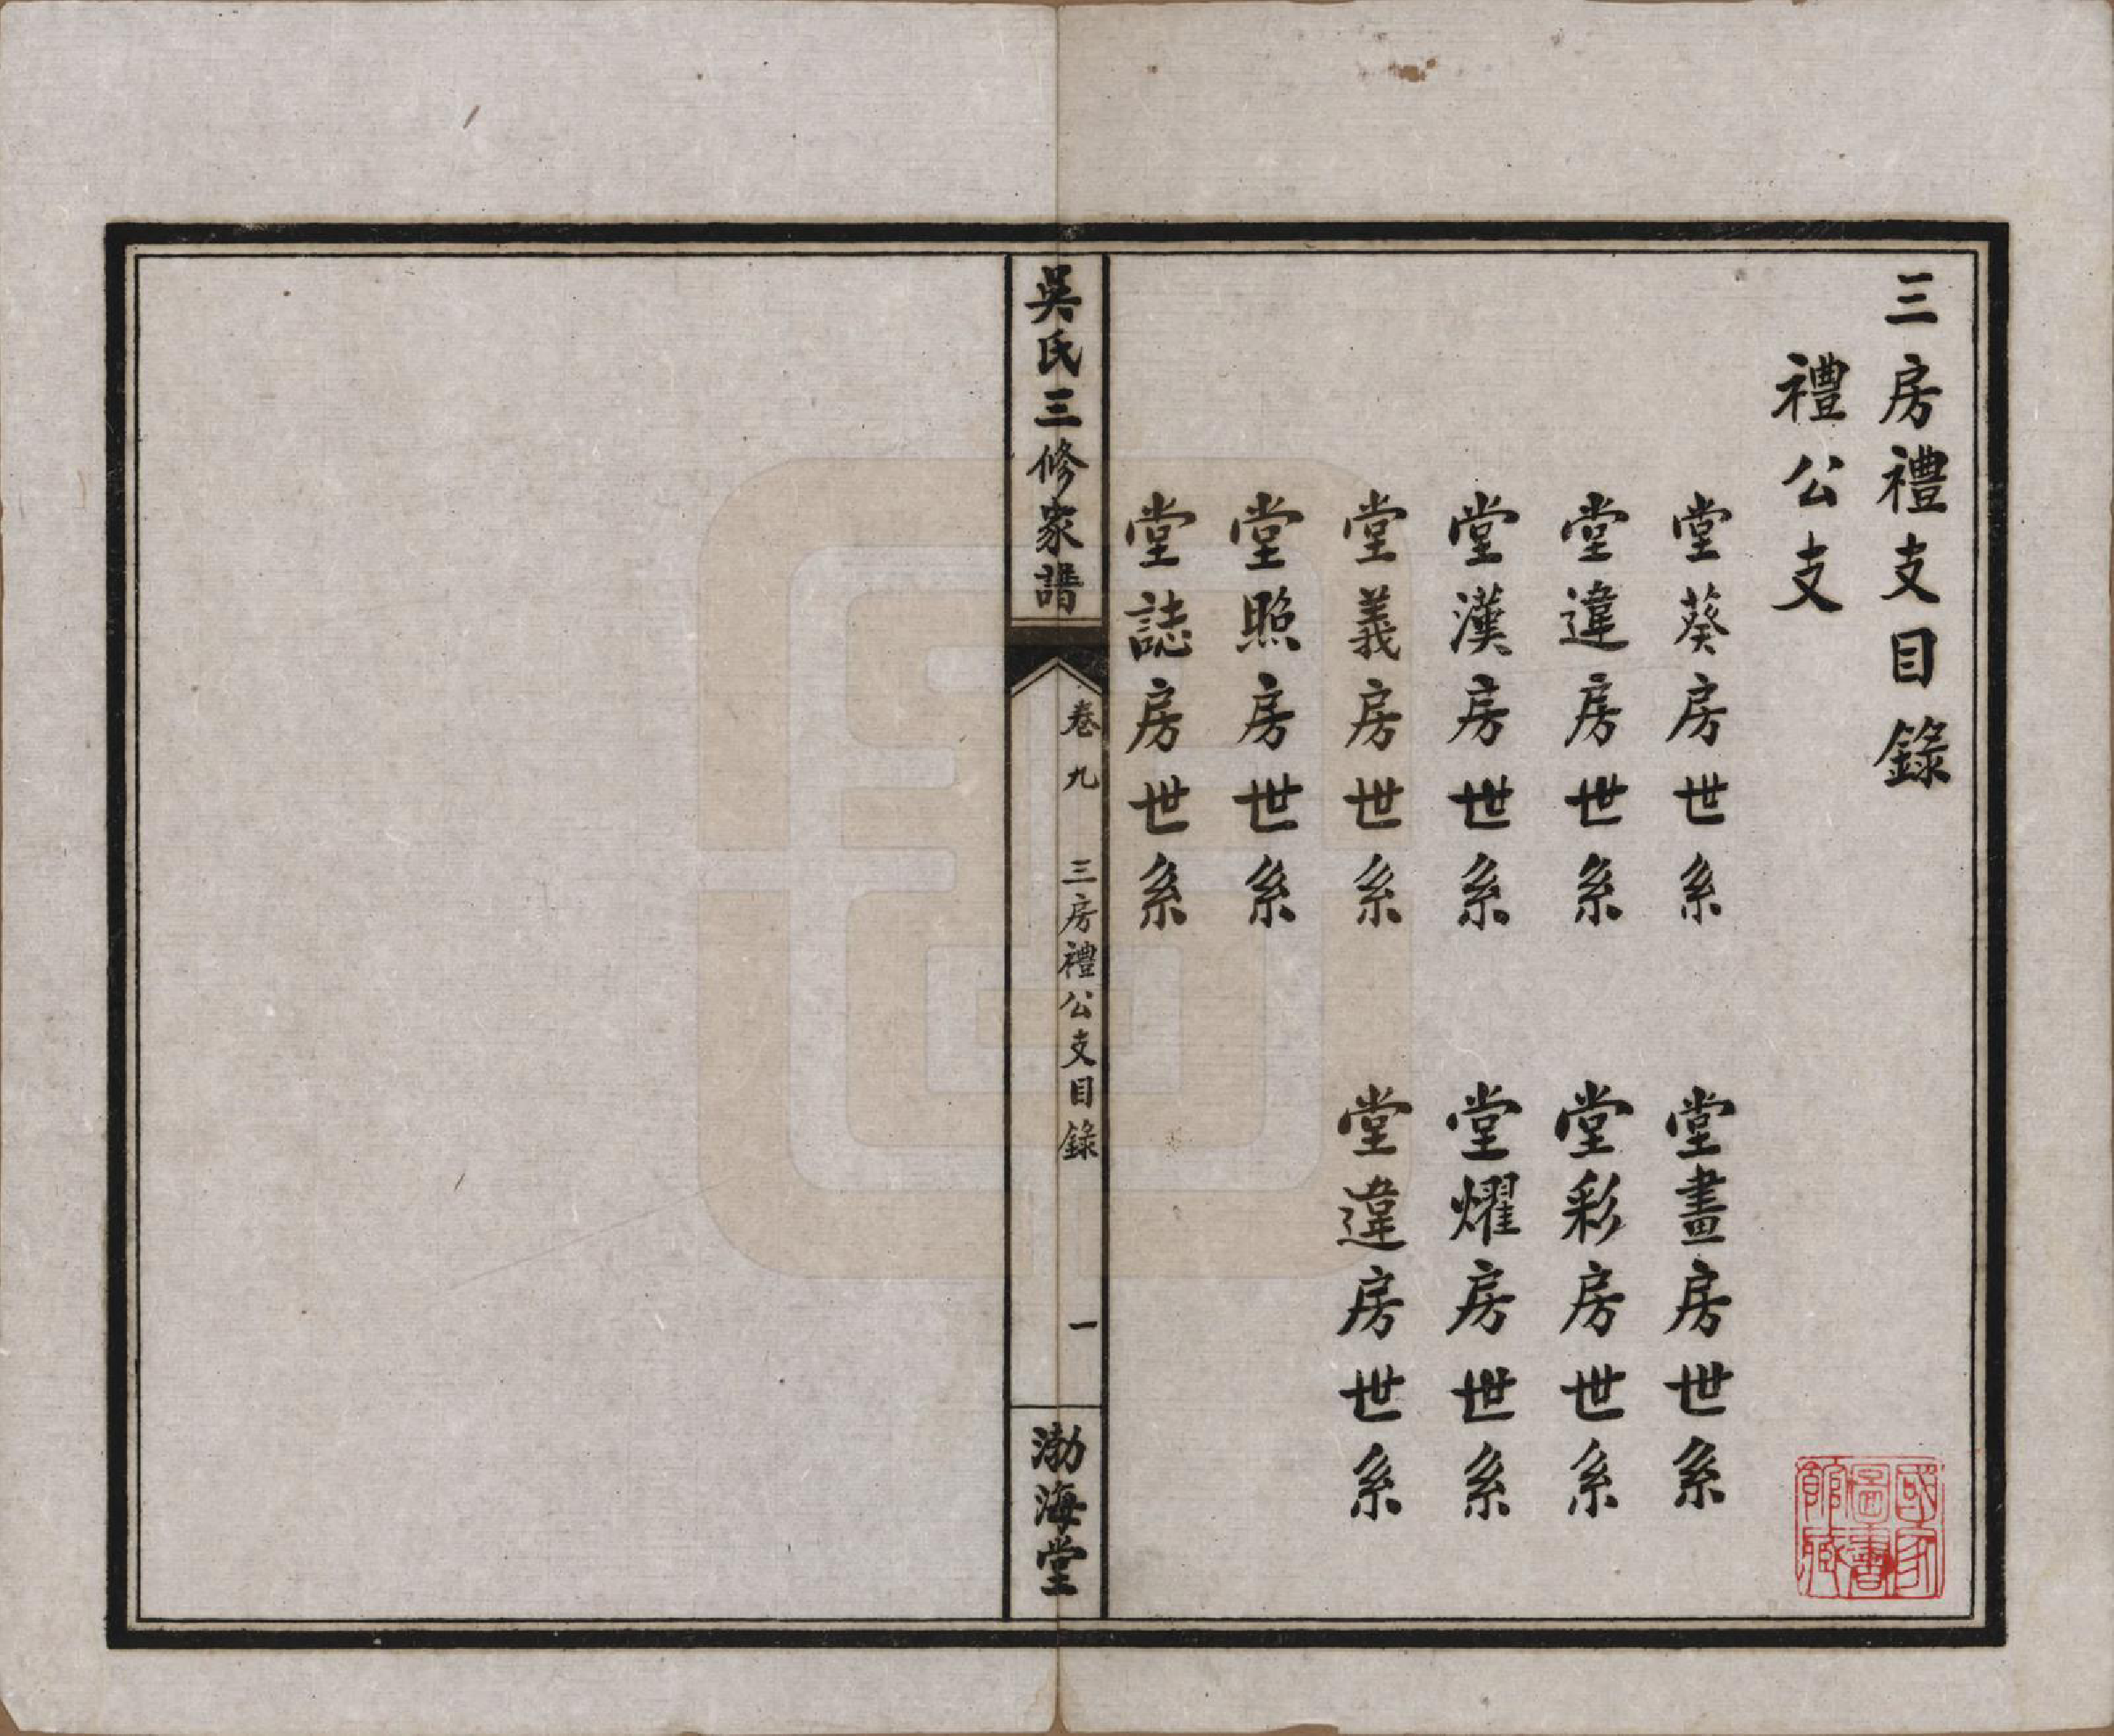 三房禮支目錄
禮公支
堂葵房世系
堂畫房世系
堂違房世系
堂彩房世系
堂漢房世系
堂燿房世系
堂義房世系
堂違房世系
堂照房世系
堂誌房世系
吳氏三修家譜
卷九 三房禮公支目錄 一
渤海堂
國家
圖書
館藏